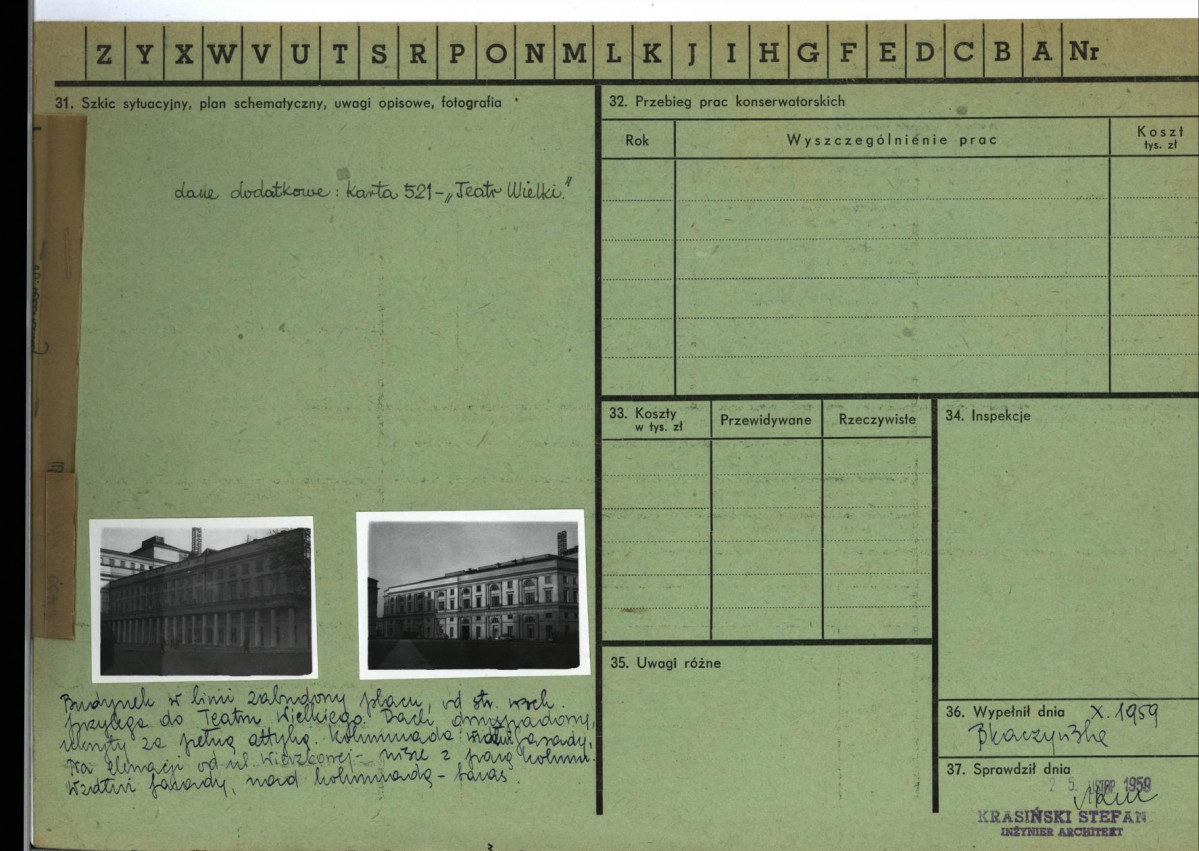 Z Y X W V U T S R P O N M L K J I H G F E D C B A Nr
31. Szkic sytuacyjny, plan schematyczny, uwagi opisowe, fotografia
dane dodatkowe: karta 521 - „Teatr Wielki."
Budynek w linii zabudowy placu, od str. wsch.
przylega do Teatru Wielkiego. Dach dwuspadowy,
ukryty za pełną attyką. Kolumnada wzdłuż fasady,
Na elewacji od ul. Wierzbowej - nisze z parą kolumn.
Wzdłuż fasady, nad kolumnadą - taras.
32. Przebieg prac konserwatorskich
Rok Wyszczególnienie prac Koszt
tys. zł
33. Koszty
w tys. zł
Przewidywane Rzeczywiste
34. Inspekcje
35. Uwagi różne
36. Wypełnił dnia X. 1959
37. Sprawdził dnia
25. LISTOP 1959
KRASIŃSKI STEFAN
INŻYNIER ARCHITEKT